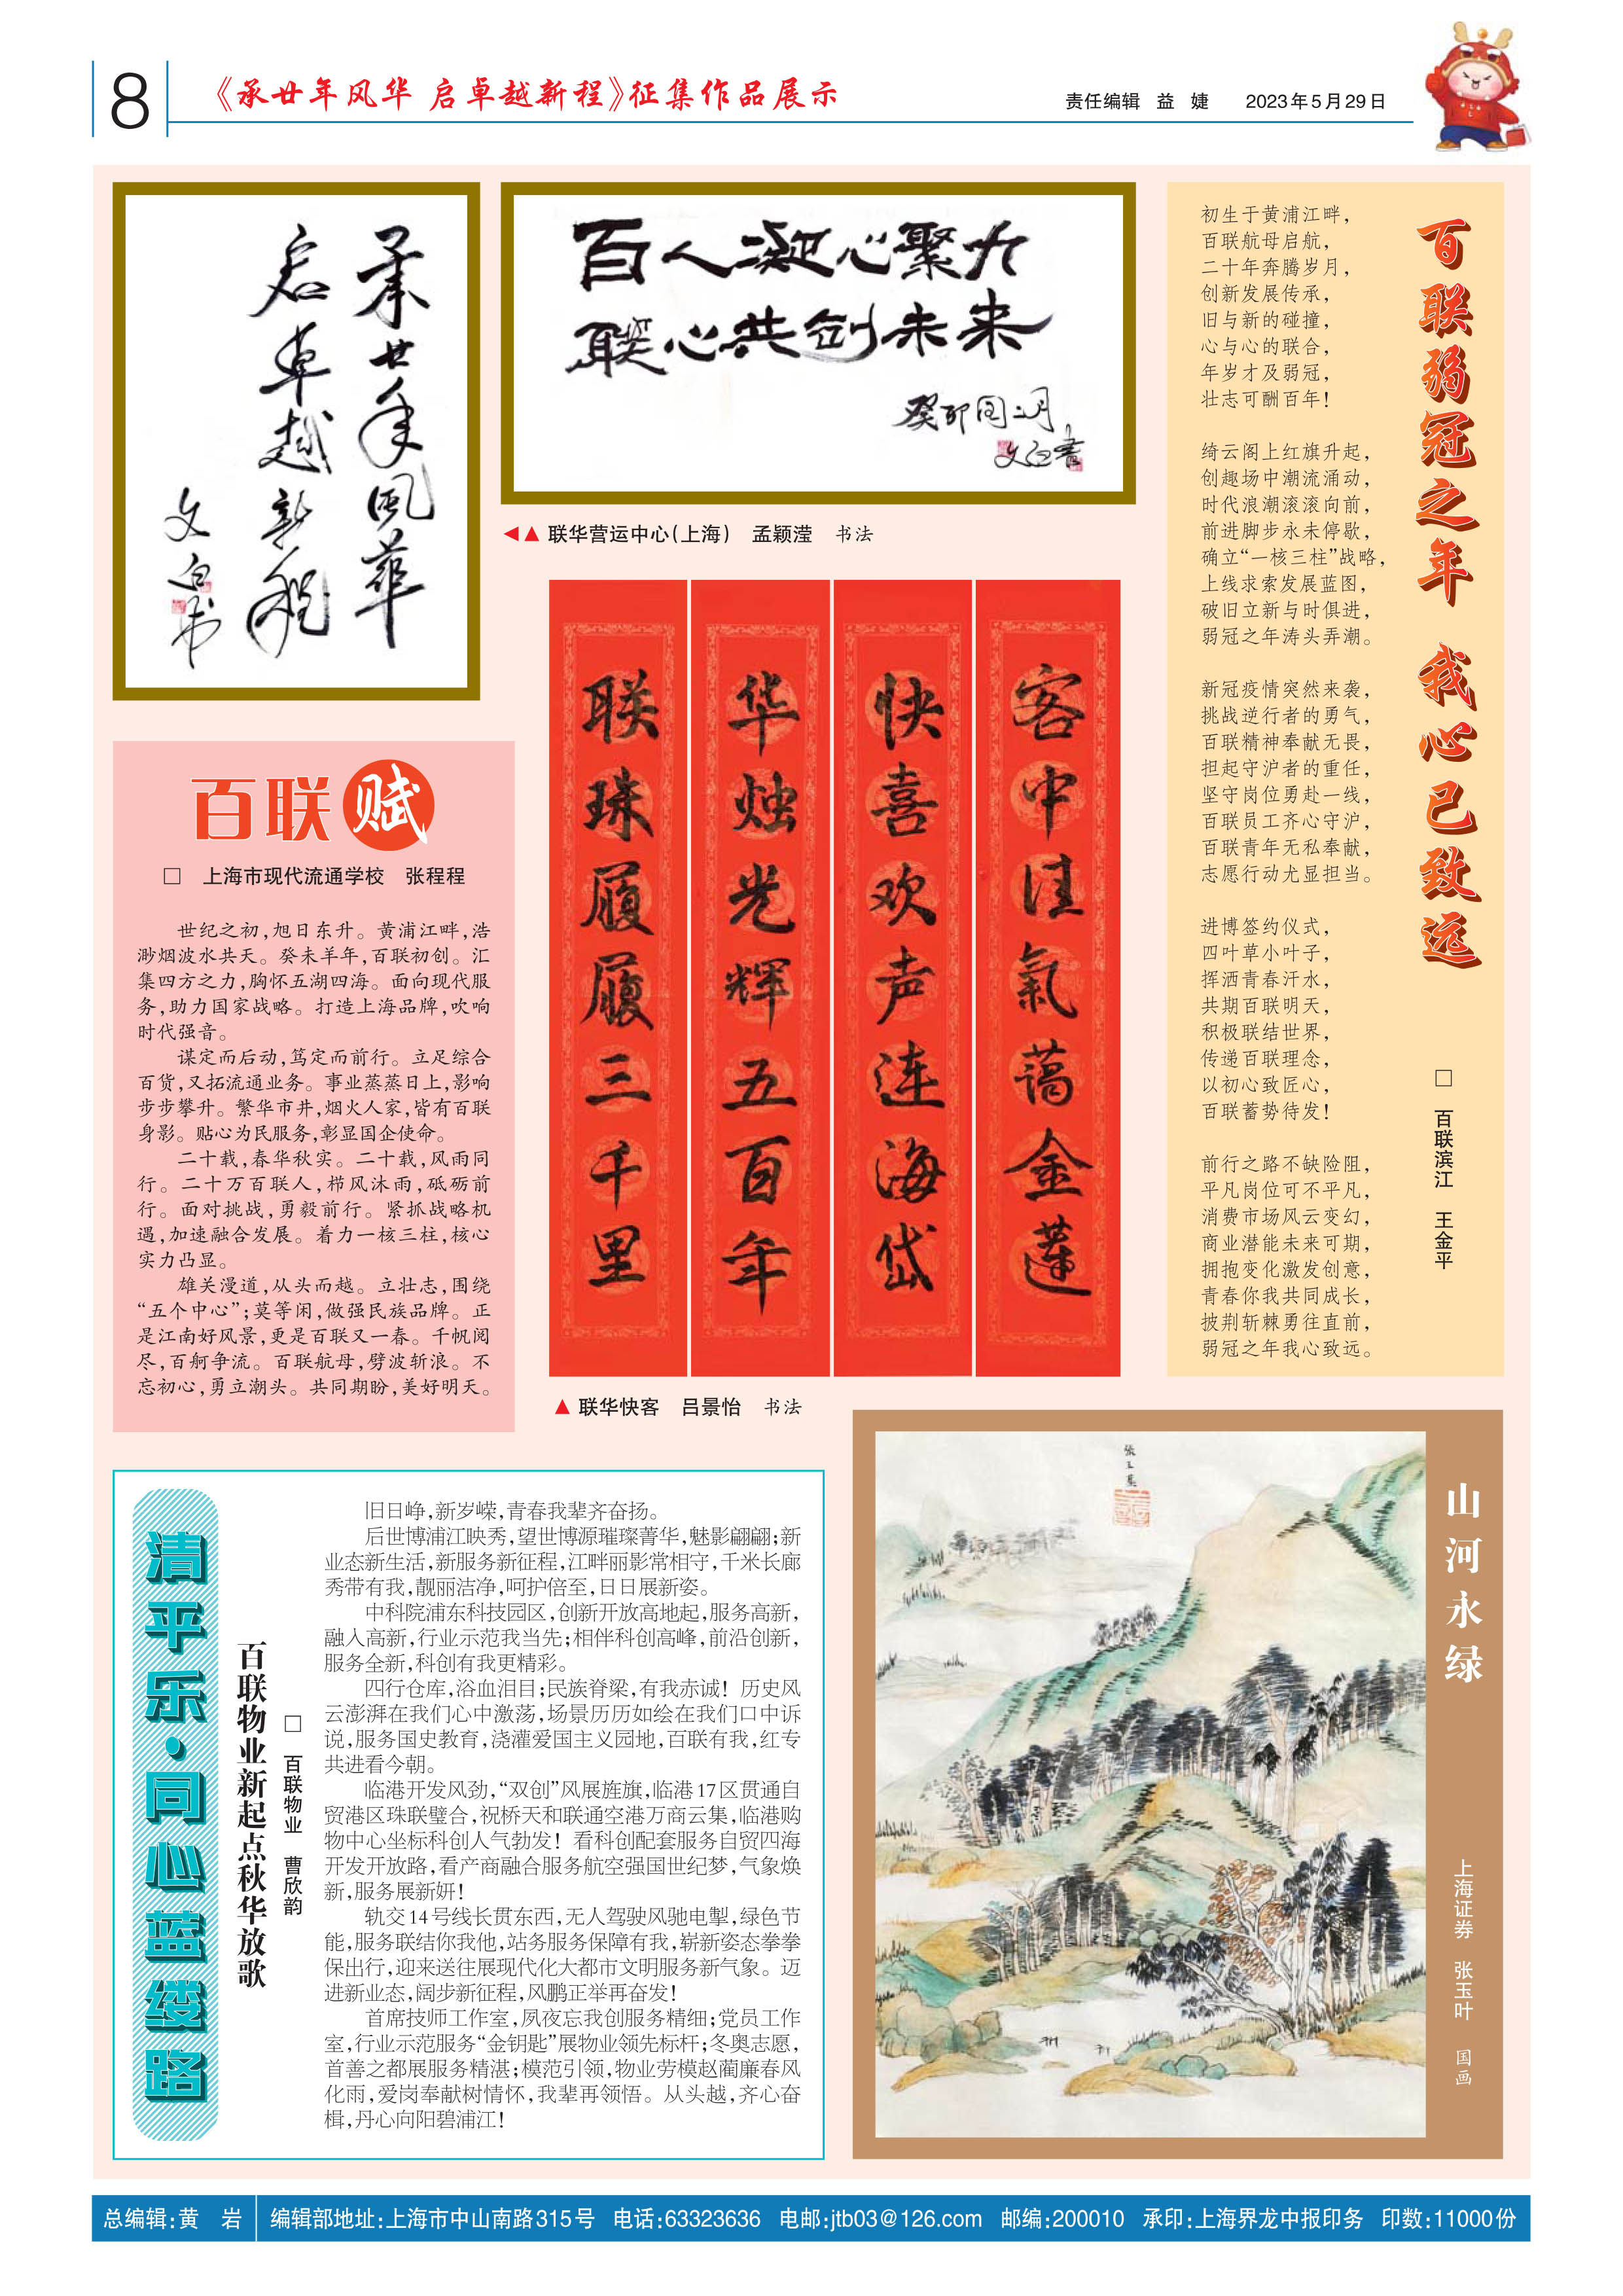 8
《承廿年风华 启卓越新程》征集作品展示
责任编辑 益 婕 2023年5月29日
承廿年風華
启卓越新程
文白书
百人凝心聚力
联心共创未来
癸卯闰二月
文白书
联华营运中心(上海) 孟颖滢 书法
联珠履履三千里
华烛光辉五百年
快喜欢声连海岱
客中佳氣蔼金莲
联华快客 吕景怡 书法
百联弱冠之年 我心已致远
□ 百联滨江 王金平
初生于黄浦江畔，
百联航母启航，
二十年奔腾岁月，
创新发展传承，
旧与新的碰撞，
心与心的联合，
年岁才及弱冠，
壮志可酬百年！
绮云阁上红旗升起，
创趣场中潮流涌动，
时代浪潮滚滚向前，
前进脚步永未停歇，
确立“一核三柱”战略，
上线求索发展蓝图，
破旧立新与时俱进，
弱冠之年涛头弄潮。
新冠疫情突然来袭，
挑战逆行者的勇气，
百联精神奉献无畏，
担起守沪者的重任，
坚守岗位勇赴一线，
百联员工齐心守沪，
百联青年无私奉献，
志愿行动尤显担当。
进博签约仪式，
四叶草小叶子，
挥洒青春汗水，
共期百联明天，
积极联结世界，
传递百联理念，
以初心致匠心，
百联蓄势待发！
前行之路不缺险阻，
平凡岗位可不平凡，
消费市场风云变幻，
商业潜能未来可期，
拥抱变化激发创意，
青春你我共同成长，
披荆斩棘勇往直前，
弱冠之年我心致远。
百联赋
□ 上海市现代流通学校 张程程
世纪之初，旭日东升。黄浦江畔，浩
渺烟波水共天。癸未羊年，百联初创。汇
集四方之力，胸怀五湖四海。面向现代服
务，助力国家战略。打造上海品牌，吹响
时代强音。
谋定而后动，笃定而前行。立足综合
百货，又拓流通业务。事业蒸蒸日上，影响
步步攀升。繁华市井，烟火人家，皆有百联
身影。贴心为民服务，彰显国企使命。
二十载，春华秋实。二十载，风雨同
行。二十万百联人，栉风沐雨，砥砺前
行。面对挑战，勇毅前行。紧抓战略机
遇，加速融合发展。着力一核三柱，核心
实力凸显。
雄关漫道，从头而越。立壮志，围绕
“五个中心”；莫等闲，做强民族品牌。正
是江南好风景，更是百联又一春。千帆阅
尽，百舸争流。百联航母，劈波斩浪。不
忘初心，勇立潮头。共同期盼，美好明天。
清平乐·同心蓝缕路
百联物业新起点秋华放歌
□ 百联物业 曹欣韵
旧日峥，新岁嵘，青春我辈齐奋扬。
后世博浦江映秀，望世博源璀璨菁华，魅影翩翩；新
业态新生活，新服务新征程，江畔丽影常相守，千米长廊
秀带有我，靓丽洁净，呵护倍至，日日展新姿。
中科院浦东科技园区，创新开放高地起，服务高新，
融入高新，行业示范我当先；相伴科创高峰，前沿创新，
服务全新，科创有我更精彩。
四行仓库，浴血泪目；民族脊梁，有我赤诚！历史风
云澎湃在我们心中激荡，场景历历如绘在我们口中诉
说，服务国史教育，浇灌爱国主义园地，百联有我，红专
共进看今朝。
临港开发风劲，“双创”风展旌旗，临港17区贯通自
贸港区珠联璧合，祝桥天和联通空港万商云集，临港购
物中心坐标科创人气勃发！看科创配套服务自贸四海
开发开放路，看产商融合服务航空强国世纪梦，气象焕
新，服务展新妍！
轨交14号线长贯东西，无人驾驶风驰电掣，绿色节
能，服务联结你我他，站务服务保障有我，崭新姿态拳拳
保出行，迎来送往展现代化大都市文明服务新气象。迈
进新业态，阔步新征程，风鹏正举再奋发！
首席技师工作室，夙夜忘我创服务精细；党员工作
室，行业示范服务“金钥匙”展物业领先标杆；冬奥志愿，
首善之都展服务精湛；模范引领，物业劳模赵蔺廉春风
化雨，爱岗奉献树情怀，我辈再领悟。从头越，齐心奋
楫，丹心向阳碧浦江！
山河永绿
上海证券 张玉叶 国画
总编辑：黄 岩 编辑部地址：上海市中山南路315号 电话：63323636 电邮：jtb03@126.com 邮编：200010 承印：上海界龙中报印务 印数：11000份